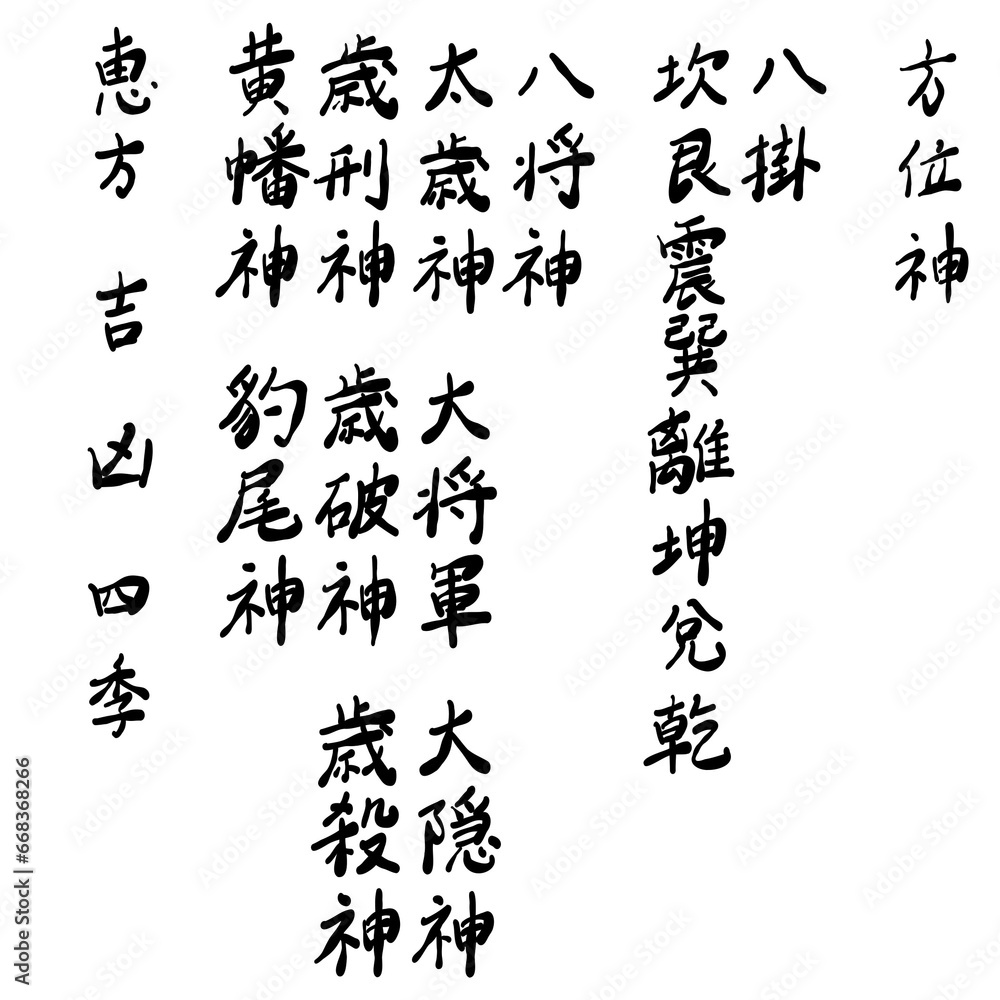 方位神
八掛
坎艮震巽離坤兌乾
八将神
太歳神 大将軍 大隠神
歳刑神 歳破神 歳殺神
黄幡神 豹尾神
恵方 吉 凶 四季
Adobe Stock | #668368266